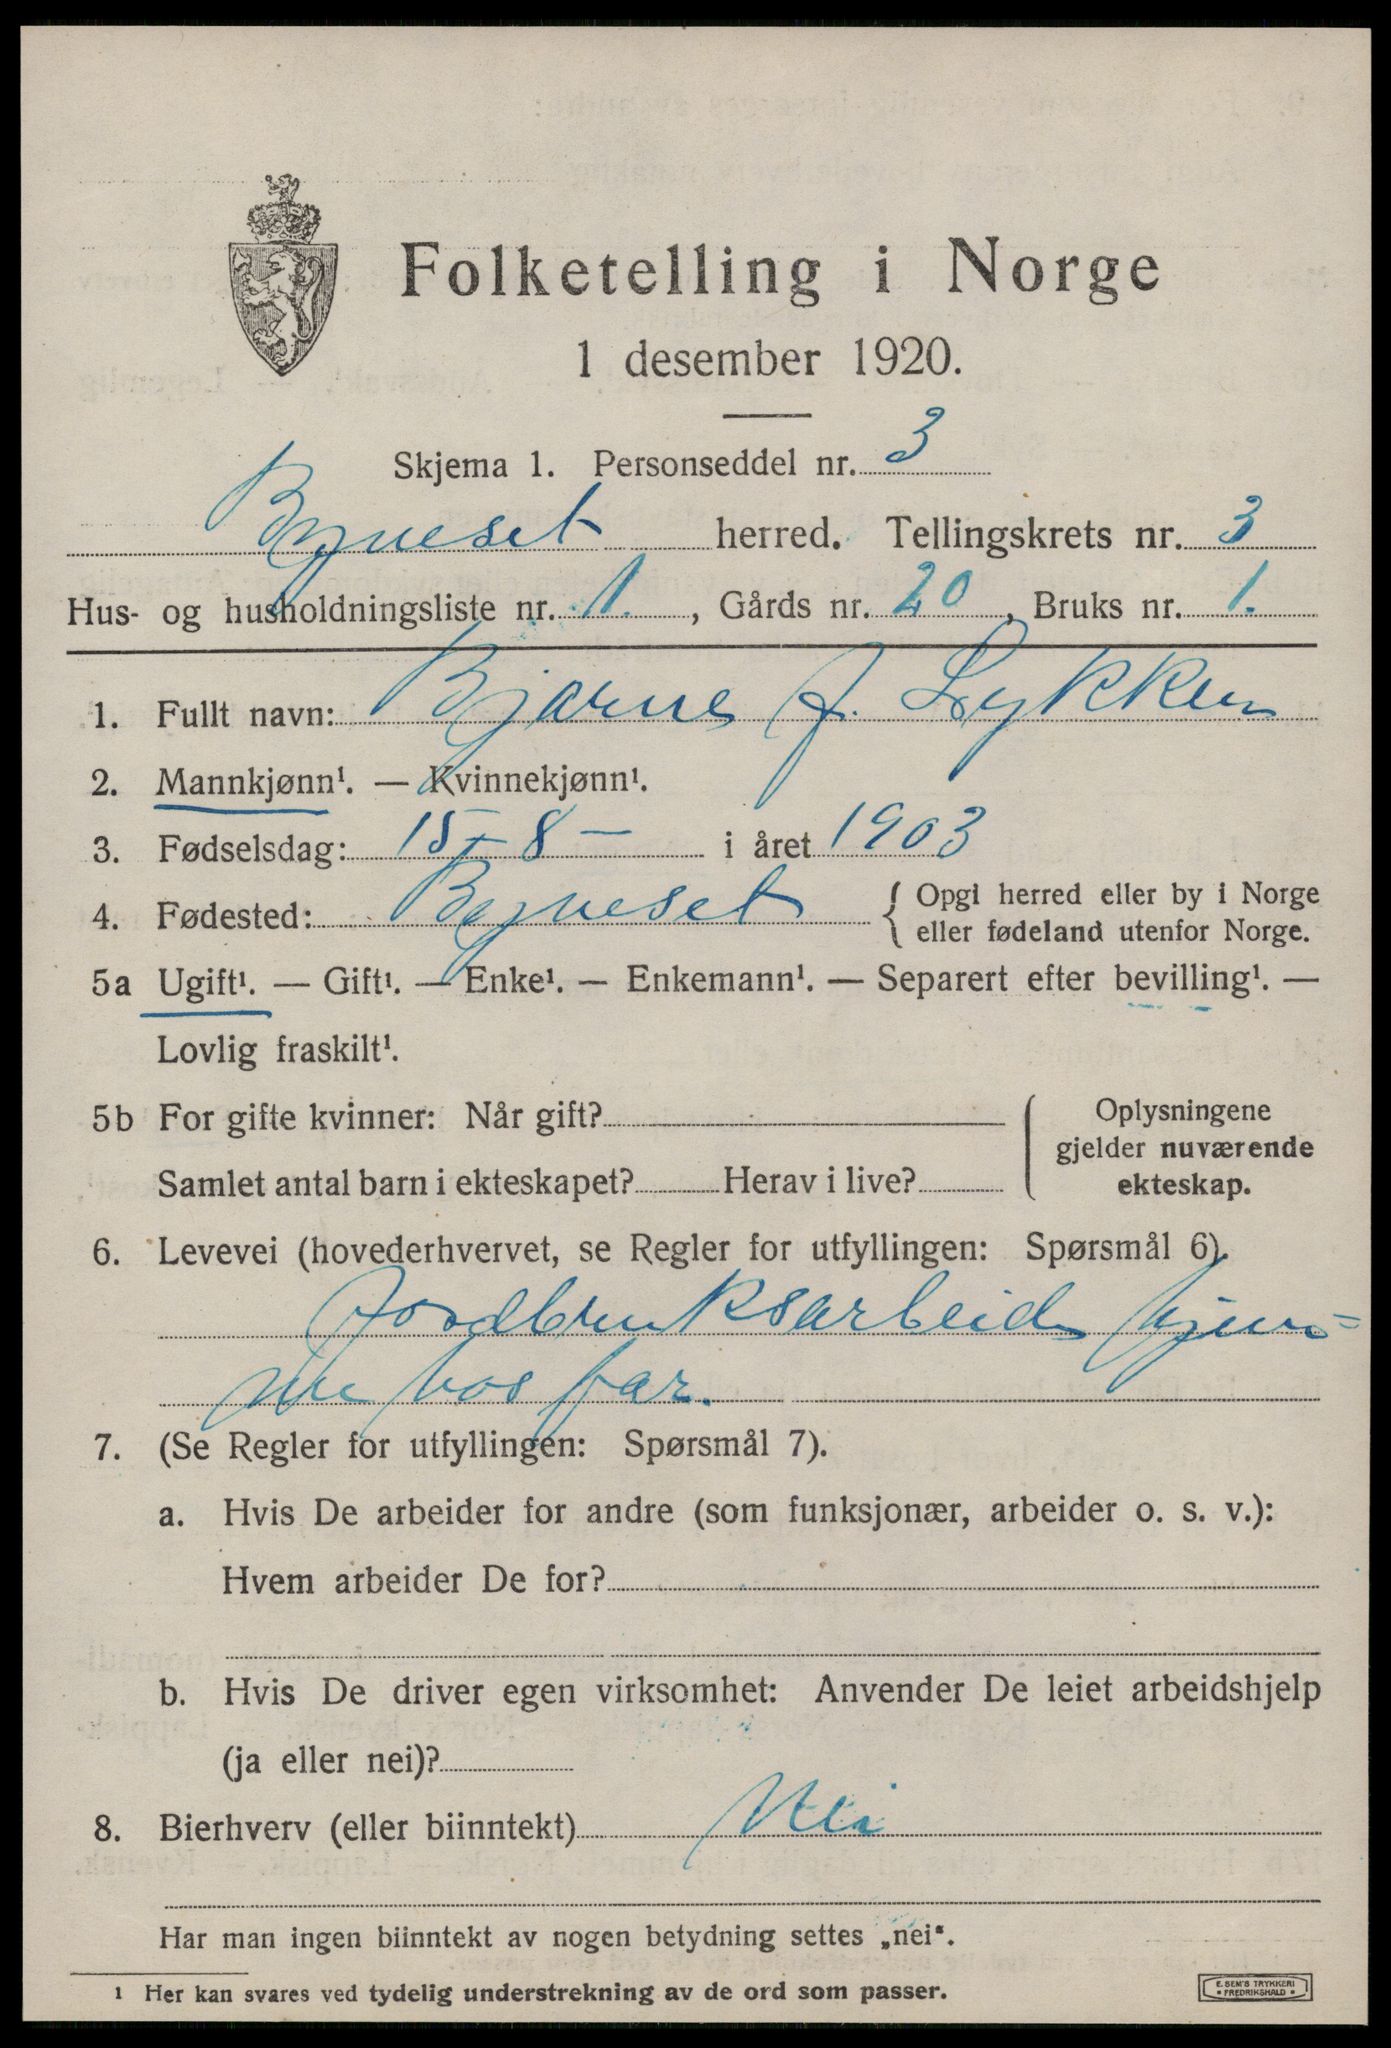 Folketelling i Norge
1 desember 1920.
Skjema 1. Personseddel nr. 3
Byneset herred. Tellingskrets nr. 3
Hus- og husholdningsliste nr. 1., Gårds nr. 20, Bruks nr. 1.
1. Fullt navn: Bjarne J. Lykken
2. Mannkjønn¹. — Kvinnekjønn¹.
3. Fødselsdag: 15 - 8 - i året 1903
4. Fødested: Byneset { Opgi herred eller by i Norge
eller fødeland utenfor Norge.
5a Ugift¹. — Gift¹. — Enke¹. — Enkemann¹. — Separert efter bevilling¹. —
Lovlig fraskilt¹.
5b For gifte kvinner: Når gift? Oplysningene
gjelder nuværende
Samlet antal barn i ekteskapet? Herav i live? ekteskap.
6. Levevei (hovederhvervet, se Regler for utfyllingen: Spørsmål 6).
Jordbruksarbeide hjem=
me hos far.
7. (Se Regler for utfyllingen: Spørsmål 7).
a. Hvis De arbeider for andre (som funksjonær, arbeider o. s. v.):
Hvem arbeider De for?
b. Hvis De driver egen virksomhet: Anvender De leiet arbeidshjelp
(ja eller nei)?
8. Bierhverv (eller biinntekt) Nei
Har man ingen biinntekt av nogen betydning settes „nei“.
¹ Her kan svares ved tydelig understrekning av de ord som passer.
E. SEM'S TRYKKERI
FREDRIKSHALD